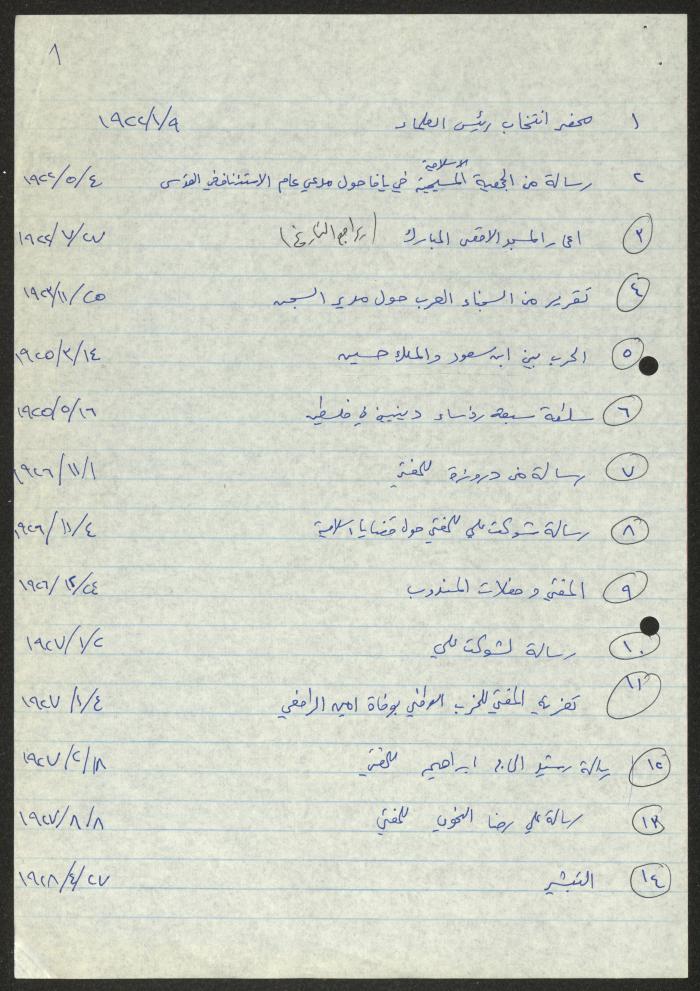 ١
١ محضر انتخاب رئيس العلماء ١٩٢٢/١/٩
٢ رسالة من الجمعية الاسلامية المسيحية في يافا حول مدعي عام الاستئناف في القدس ١٩٢٢/٥/٤
٣ اعمار المسجد الاقصى المبارك (يراجع التاريخ) ١٩٢٢/٧/٢٧
٤ تقرير من السجناء العرب حول مدير السجن ١٩٢٣/١١/٢٥
٥ الحرب بين ابن سعود والملك حسين ١٩٢٥/٣/١٤
٦ سبعة رؤساء دينيين في فلسطين ١٩٢٥/٥/١٦
٧ رسالة من دروزة للمفتي ١٩٢٦/١١/١
٨ رسالة شوكت علي للمفتي حول قضايا اسلامية ١٩٢٦/١١/٤
٩ المفتي وحفلات المندوب ١٩٢٦/١٢/٢٤
١٠ رسالة لشوكت علي ١٩٢٧/١/٢
١١ تعزية المفتي للحزب الوطني بوفاة امين الرافعي ١٩٢٧/١/٤
١٢ رسالة رشيد الحاج ابراهيم للمفتي ١٩٢٧/٢/١٨
١٣ رسالة علي رضا للمفتي ١٩٢٧/٨/٨
١٤ التبشير ١٩٢٨/٤/٢٧